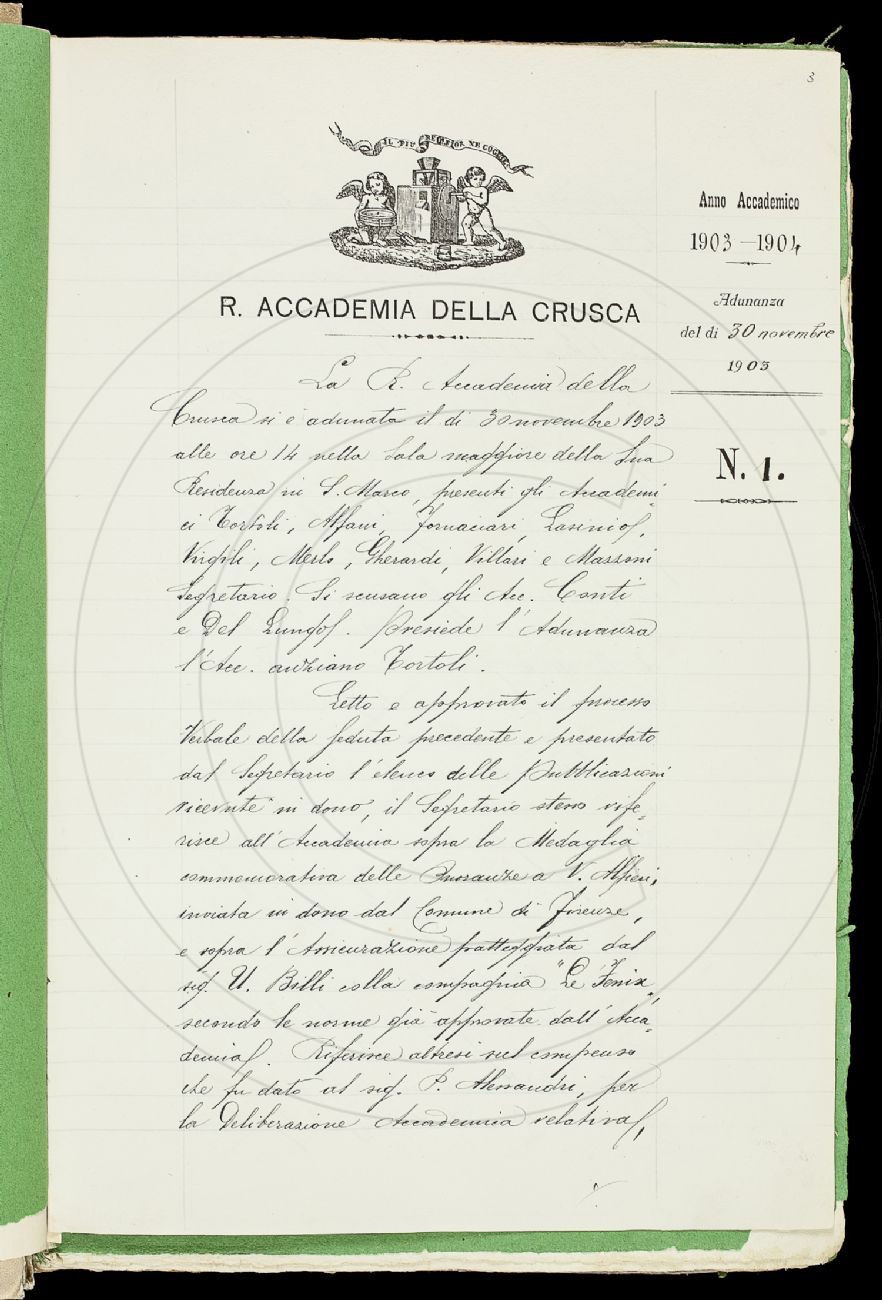 3
IL PIU BEL FIOR NE COGLIE
Anno Accademico
1903-1904
Adunanza
del dì 30 novembre
1903
R. ACCADEMIA DELLA CRUSCA
N. 1.
La R. Accademia della
Crusca si è adunata il dì 30 novembre 1903
alle ore 14 nella Sala maggiore della Sua
Residenza in S. Marco, presenti gli Accademi-
ci Tortoli, Alfani, Fornaciari, Lasinio,
Virgili, Merlo, Gherardi, Villari e Mazzoni
Segretario. Si scusano gli Acc. Conti
e Del Lungo. Presiede l'Adunanza
l'Acc. anziano Tortoli.
Letto e approvato il processo
Verbale della seduta precedente e presentato
dal Segretario l'elenco delle Pubblicazioni
ricevute in dono, il Segretario stesso rife-
risce all'Accademia sopra la Medaglia
commemorativa delle Onoranze a V. Alfieri,
inviata in dono dal Comune di Firenze,
e sopra l'Assicurazione patteggiata dal
sig. U. Billi colla compagnia "Le Fenix"
secondo le norme già approvate dall'Acca-
demia. Riferisce altresì sul compenso
che fu dato al sig. P. Alessandri, per
la Deliberazione Accademica relativa,